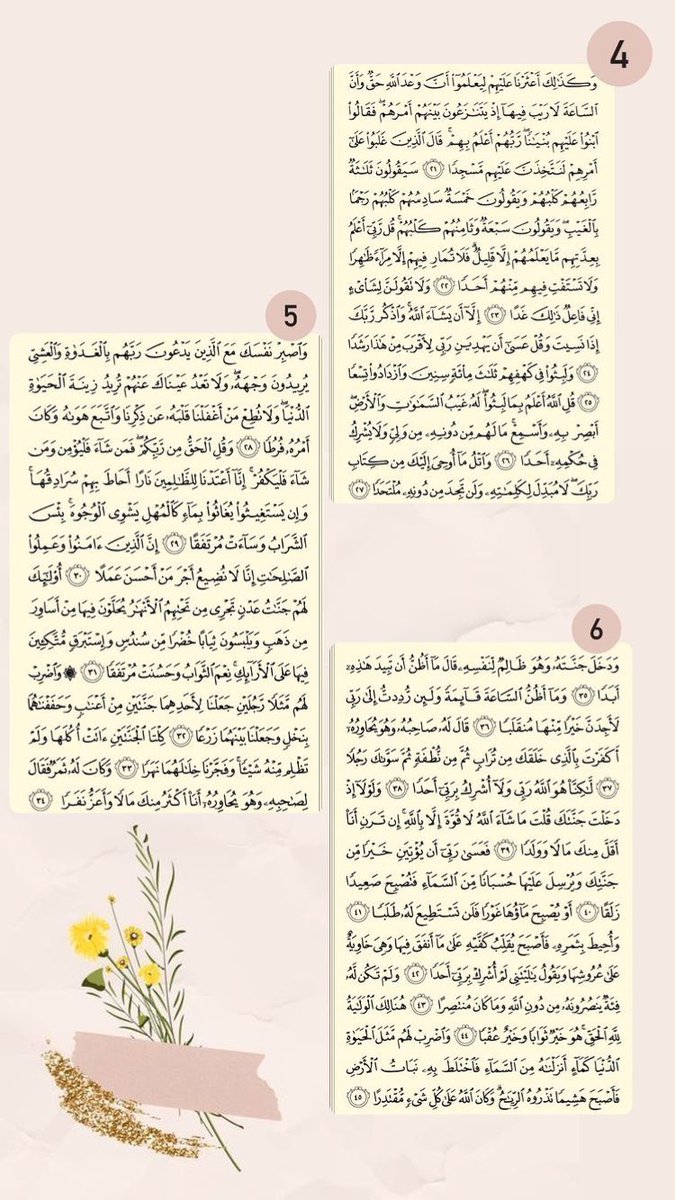 4
وَكَذَٰلِكَ أَعْثَرْنَا عَلَيْهِمْ لِيَعْلَمُوٓا۟ أَنَّ وَعْدَ ٱللَّهِ حَقٌّ وَأَنَّ
ٱلسَّاعَةَ لَا رَيْبَ فِيهَآ إِذْ يَتَنَٰزَعُونَ بَيْنَهُمْ أَمْرَهُمْ ۖ فَقَالُوا۟
ٱبْنُوا۟ عَلَيْهِم بُنْيَٰنًا ۖ رَّبُّهُمْ أَعْلَمُ بِهِمْ ۚ قَالَ ٱلَّذِينَ غَلَبُوا۟ عَلَىٰٓ
أَمْرِهِمْ لَنَتَّخِذَنَّ عَلَيْهِم مَّسْجِدًا ٢١ سَيَقُولُونَ ثَلَٰثَةٌ
رَّابِعُهُمْ كَلْبُهُمْ وَيَقُولُونَ خَمْسَةٌ سَادِسُهُمْ كَلْبُهُمْ رَجْمًۢا
بِٱلْغَيْبِ ۖ وَيَقُولُونَ سَبْعَةٌ وَثَامِنُهُمْ كَلْبُهُمْ ۚ قُل رَّبِّىٓ أَعْلَمُ
بِعِدَّتِهِم مَّا يَعْلَمُهُمْ إِلَّا قَلِيلٌ ۗ فَلَا تُمَارِ فِيهِمْ إِلَّا مِرَآءً ظَٰهِرًا
وَلَا تَسْتَفْتِ فِيهِم مِّنْهُمْ أَحَدًا ٢٢ وَلَا تَقُولَنَّ لِشَا۟ىْءٍ
إِنِّى فَاعِلٌ ذَٰلِكَ غَدًا ٢٣ إِلَّآ أَن يَشَآءَ ٱللَّهُ ۚ وَٱذْكُر رَّبَّكَ
إِذَا نَسِيتَ وَقُلْ عَسَىٰٓ أَن يَهْدِيَنِ رَبِّى لِأَقْرَبَ مِنْ هَٰذَا رَشَدًا
٢٤ وَلَبِثُوا۟ فِى كَهْفِهِمْ ثَلَٰثَ مِا۟ئَةٍ سِنِينَ وَٱزْدَادُوا۟ تِسْعًا
٢٥ قُلِ ٱللَّهُ أَعْلَمُ بِمَا لَبِثُوا۟ ۖ لَهُۥ غَيْبُ ٱلسَّمَٰوَٰتِ وَٱلْأَرْضِ ۖ
أَبْصِرْ بِهِۦ وَأَسْمِعْ ۚ مَا لَهُم مِّن دُونِهِۦ مِن وَلِىٍّ وَلَا يُشْرِكُ
فِى حُكْمِهِۦٓ أَحَدًا ٢٦ وَٱتْلُ مَآ أُوحِىَ إِلَيْكَ مِن كِتَابِ
رَبِّكَ ۖ لَا مُبَدِّلَ لِكَلِمَٰتِهِۦ وَلَن تَجِدَ مِن دُونِهِۦ مُلْتَحَدًا ٢٧
5
وَٱصْبِرْ نَفْسَكَ مَعَ ٱلَّذِينَ يَدْعُونَ رَبَّهُم بِٱلْغَدَوٰةِ وَٱلْعَشِىِّ
يُرِيدُونَ وَجْهَهُۥ ۖ وَلَا تَعْدُ عَيْنَاكَ عَنْهُمْ تُرِيدُ زِينَةَ ٱلْحَيَوٰةِ
ٱلدُّنْيَا ۖ وَلَا تُطِعْ مَنْ أَغْفَلْنَا قَلْبَهُۥ عَن ذِكْرِنَا وَٱتَّبَعَ هَوَىٰهُ وَكَانَ
أَمْرُهُۥ فُرُطًا ٢٨ وَقُلِ ٱلْحَقُّ مِن رَّبِّكُمْ ۖ فَمَن شَآءَ فَلْيُؤْمِن وَمَن
شَآءَ فَلْيَكْفُرْ ۚ إِنَّآ أَعْتَدْنَا لِلظَّٰلِمِينَ نَارًا أَحَاطَ بِهِمْ سُرَادِقُهَا ۚ
وَإِن يَسْتَغِيثُوا۟ يُغَاثُوا۟ بِمَآءٍ كَٱلْمُهْلِ يَشْوِى ٱلْوُجُوهَ ۚ بِئْسَ
ٱلشَّرَابُ وَسَآءَتْ مُرْتَفَقًا ٢٩ إِنَّ ٱلَّذِينَ ءَامَنُوا۟ وَعَمِلُوا۟
ٱلصَّٰلِحَٰتِ إِنَّا لَا نُضِيعُ أَجْرَ مَنْ أَحْسَنَ عَمَلًا ٣٠ أُو۟لَٰٓئِكَ
لَهُمْ جَنَّٰتُ عَدْنٍ تَجْرِى مِن تَحْتِهِمُ ٱلْأَنْهَٰرُ يُحَلَّوْنَ فِيهَا مِنْ أَسَاوِرَ
مِن ذَهَبٍ وَيَلْبَسُونَ ثِيَابًا خُضْرًا مِّن سُندُسٍ وَإِسْتَبْرَقٍ مُّتَّكِـِٔينَ
فِيهَا عَلَى ٱلْأَرَآئِكِ ۚ نِعْمَ ٱلثَّوَابُ وَحَسُنَتْ مُرْتَفَقًا ٣١ ۞ وَٱضْرِبْ
لَهُم مَّثَلًا رَّجُلَيْنِ جَعَلْنَا لِأَحَدِهِمَا جَنَّتَيْنِ مِنْ أَعْنَٰبٍ وَحَفَفْنَٰهُمَا
بِنَخْلٍ وَجَعَلْنَا بَيْنَهُمَا زَرْعًا ٣٢ كِلْتَا ٱلْجَنَّتَيْنِ ءَاتَتْ أُكُلَهَا وَلَمْ
تَظْلِم مِّنْهُ شَيْـًٔا ۚ وَفَجَّرْنَا خِلَٰلَهُمَا نَهَرًا ٣٣ وَكَانَ لَهُۥ ثَمَرٌ فَقَالَ
لِصَٰحِبِهِۦ وَهُوَ يُحَاوِرُهُۥٓ أَنَا۠ أَكْثَرُ مِنكَ مَالًا وَأَعَزُّ نَفَرًا ٣٤
6
وَدَخَلَ جَنَّتَهُۥ وَهُوَ ظَالِمٌ لِّنَفْسِهِۦ قَالَ مَآ أَظُنُّ أَن تَبِيدَ هَٰذِهِۦٓ
أَبَدًا ٣٥ وَمَآ أَظُنُّ ٱلسَّاعَةَ قَآئِمَةً وَلَئِن رُّدِدتُّ إِلَىٰ رَبِّى
لَأَجِدَنَّ خَيْرًا مِّنْهَا مُنقَلَبًا ٣٦ قَالَ لَهُۥ صَاحِبُهُۥ وَهُوَ يُحَاوِرُهُۥٓ
أَكَفَرْتَ بِٱلَّذِى خَلَقَكَ مِن تُرَابٍ ثُمَّ مِن نُّطْفَةٍ ثُمَّ سَوَّىٰكَ رَجُلًا
٣٧ لَّٰكِنَّا۠ هُوَ ٱللَّهُ رَبِّى وَلَآ أُشْرِكُ بِرَبِّىٓ أَحَدًا ٣٨ وَلَوْلَآ إِذْ
دَخَلْتَ جَنَّتَكَ قُلْتَ مَا شَآءَ ٱللَّهُ لَا قُوَّةَ إِلَّا بِٱللَّهِ ۚ إِن تَرَنِ أَنَا۠
أَقَلَّ مِنكَ مَالًا وَوَلَدًا ٣٩ فَعَسَىٰ رَبِّىٓ أَن يُؤْتِيَنِ خَيْرًا مِّن
جَنَّتِكَ وَيُرْسِلَ عَلَيْهَا حُسْبَانًا مِّنَ ٱلسَّمَآءِ فَتُصْبِحَ صَعِيدًا
زَلَقًا ٤٠ أَوْ يُصْبِحَ مَآؤُهَا غَوْرًا فَلَن تَسْتَطِيعَ لَهُۥ طَلَبًا ٤١
وَأُحِيطَ بِثَمَرِهِۦ فَأَصْبَحَ يُقَلِّبُ كَفَّيْهِ عَلَىٰ مَآ أَنفَقَ فِيهَا وَهِىَ خَاوِيَةٌ
عَلَىٰ عُرُوشِهَا وَيَقُولُ يَٰلَيْتَنِى لَمْ أُشْرِكْ بِرَبِّىٓ أَحَدًا ٤٢ وَلَمْ تَكُن لَّهُۥ
فِئَةٌ يَنصُرُونَهُۥ مِن دُونِ ٱللَّهِ وَمَا كَانَ مُنتَصِرًا ٤٣ هُنَالِكَ ٱلْوَلَٰيَةُ
لِلَّهِ ٱلْحَقِّ ۚ هُوَ خَيْرٌ ثَوَابًا وَخَيْرٌ عُقْبًا ٤٤ وَٱضْرِبْ لَهُم مَّثَلَ ٱلْحَيَوٰةِ
ٱلدُّنْيَا كَمَآءٍ أَنزَلْنَٰهُ مِنَ ٱلسَّمَآءِ فَٱخْتَلَطَ بِهِۦ نَبَاتُ ٱلْأَرْضِ
فَأَصْبَحَ هَشِيمًا تَذْرُوهُ ٱلرِّيَٰحُ ۗ وَكَانَ ٱللَّهُ عَلَىٰ كُلِّ شَىْءٍ مُّقْتَدِرًا ٤٥